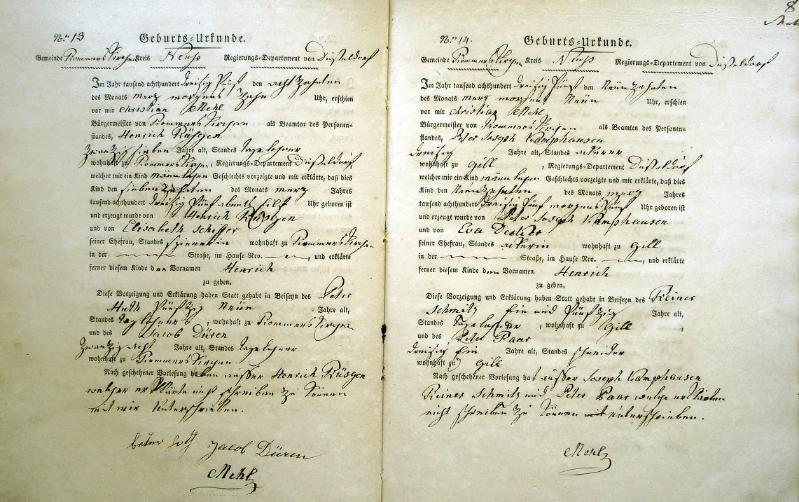 N.º 13 Geburts-Urkunde.
Gemeinde Rommerskirchen Kreis Neuß Regierungs-Departement von Düsseldorf
Im Jahr tausend achthundert dreißig fünf den acht zehnten
des Monats merz morgens zehn Uhr, erschien
vor mir Christian Mehl
Bürgermeister von Rommerskirchen als Beamten des Personen-
standes, Henrich Rüsgen
zwanzig sieben Jahre alt, Standes tagelohner
wohnhaft zu Rommerskirchen, Regierungs-Departement Düsseldorf
welcher mir ein Kind männlichen Geschlechts vorzeigte und mir erklärte, daß dies
Kind den siebenzehnten des Monats merz Jahrs
tausend achthundert dreißig fünf abents eilf Uhr geboren ist
und erzeugt wurde von Henrich Rüsgen
und von Elisabeth Scheffer
seiner Ehefrau, Standes spinnerin wohnhaft zu Rommerskirchen
in der Straße, im Hause Nro. und erklärte
ferner diesem Kinde den Vornamen Henrich
zu geben.
Diese Vorzeigung und Erklärung haben Statt gehabt in Beiseyn des Peter
Huth fünfzig neun Jahre alt,
Standes taglohner, wohnhaft zu Rommerskirchen
und des Jacob Düren
zwanzig acht Jahre alt, Standes tagelohner
wohnhaft zu Rommerskirchen
Nach geschehener Vorlesung haben außer Henrich Rüsgen
welcher erklärte nicht schreiben zu können
mit mir unterschrieben.
Jacob Düren
Mehl
8
N.º 14. Geburts-Urkunde.
Gemeinde Rommerskirchen Kreis Neuß Regierungs-Departement von Düsseldorf
Im Jahr tausend achthundert dreißig fünf den neunzehnten
des Monats merz morgens neun Uhr, erschien
vor mir Christian Mehl
Bürgermeister von Rommerskirchen als Beamten des Personen-
standes, Peter Joseph Kamphausen
dreißig Jahre alt, Standes ackerer
wohnhaft zu Gill, Regierungs-Departement Düsseldorf
welcher mir ein Kind männlichen Geschlechts vorzeigte und mir erklärte, daß dies
Kind den neunzehnten des Monats merz Jahrs
tausend achthundert dreißig fünf morgens fünf Uhr geboren ist
und erzeugt wurde von Peter Joseph Kamphausen
und von Eva
seiner Ehefrau, Standes ackerin wohnhaft zu Gill
in der Straße, im Hause Nro. und erklärte
ferner diesem Kinde den Vornamen Henrich
zu geben.
Diese Vorzeigung und Erklärung haben Statt gehabt in Beiseyn des Reiner
Schmitz ein und fünfzig Jahre alt,
Standes tagelohner, wohnhaft zu Gill
und des Peter Paar
dreißig ein Jahre alt, Standes schneider
wohnhaft zu Gill
Nach geschehener Vorlesung hat außer Joseph Kamphausen
Reiner Schmitz und Peter Paar welche erklärten
nicht schreiben zu können unterschrieben.
Mehl